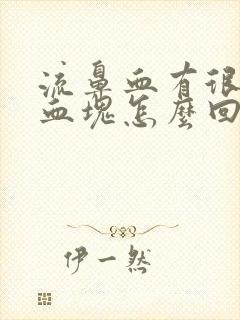 流鼻血有很
血塊怎麼回
伊一然